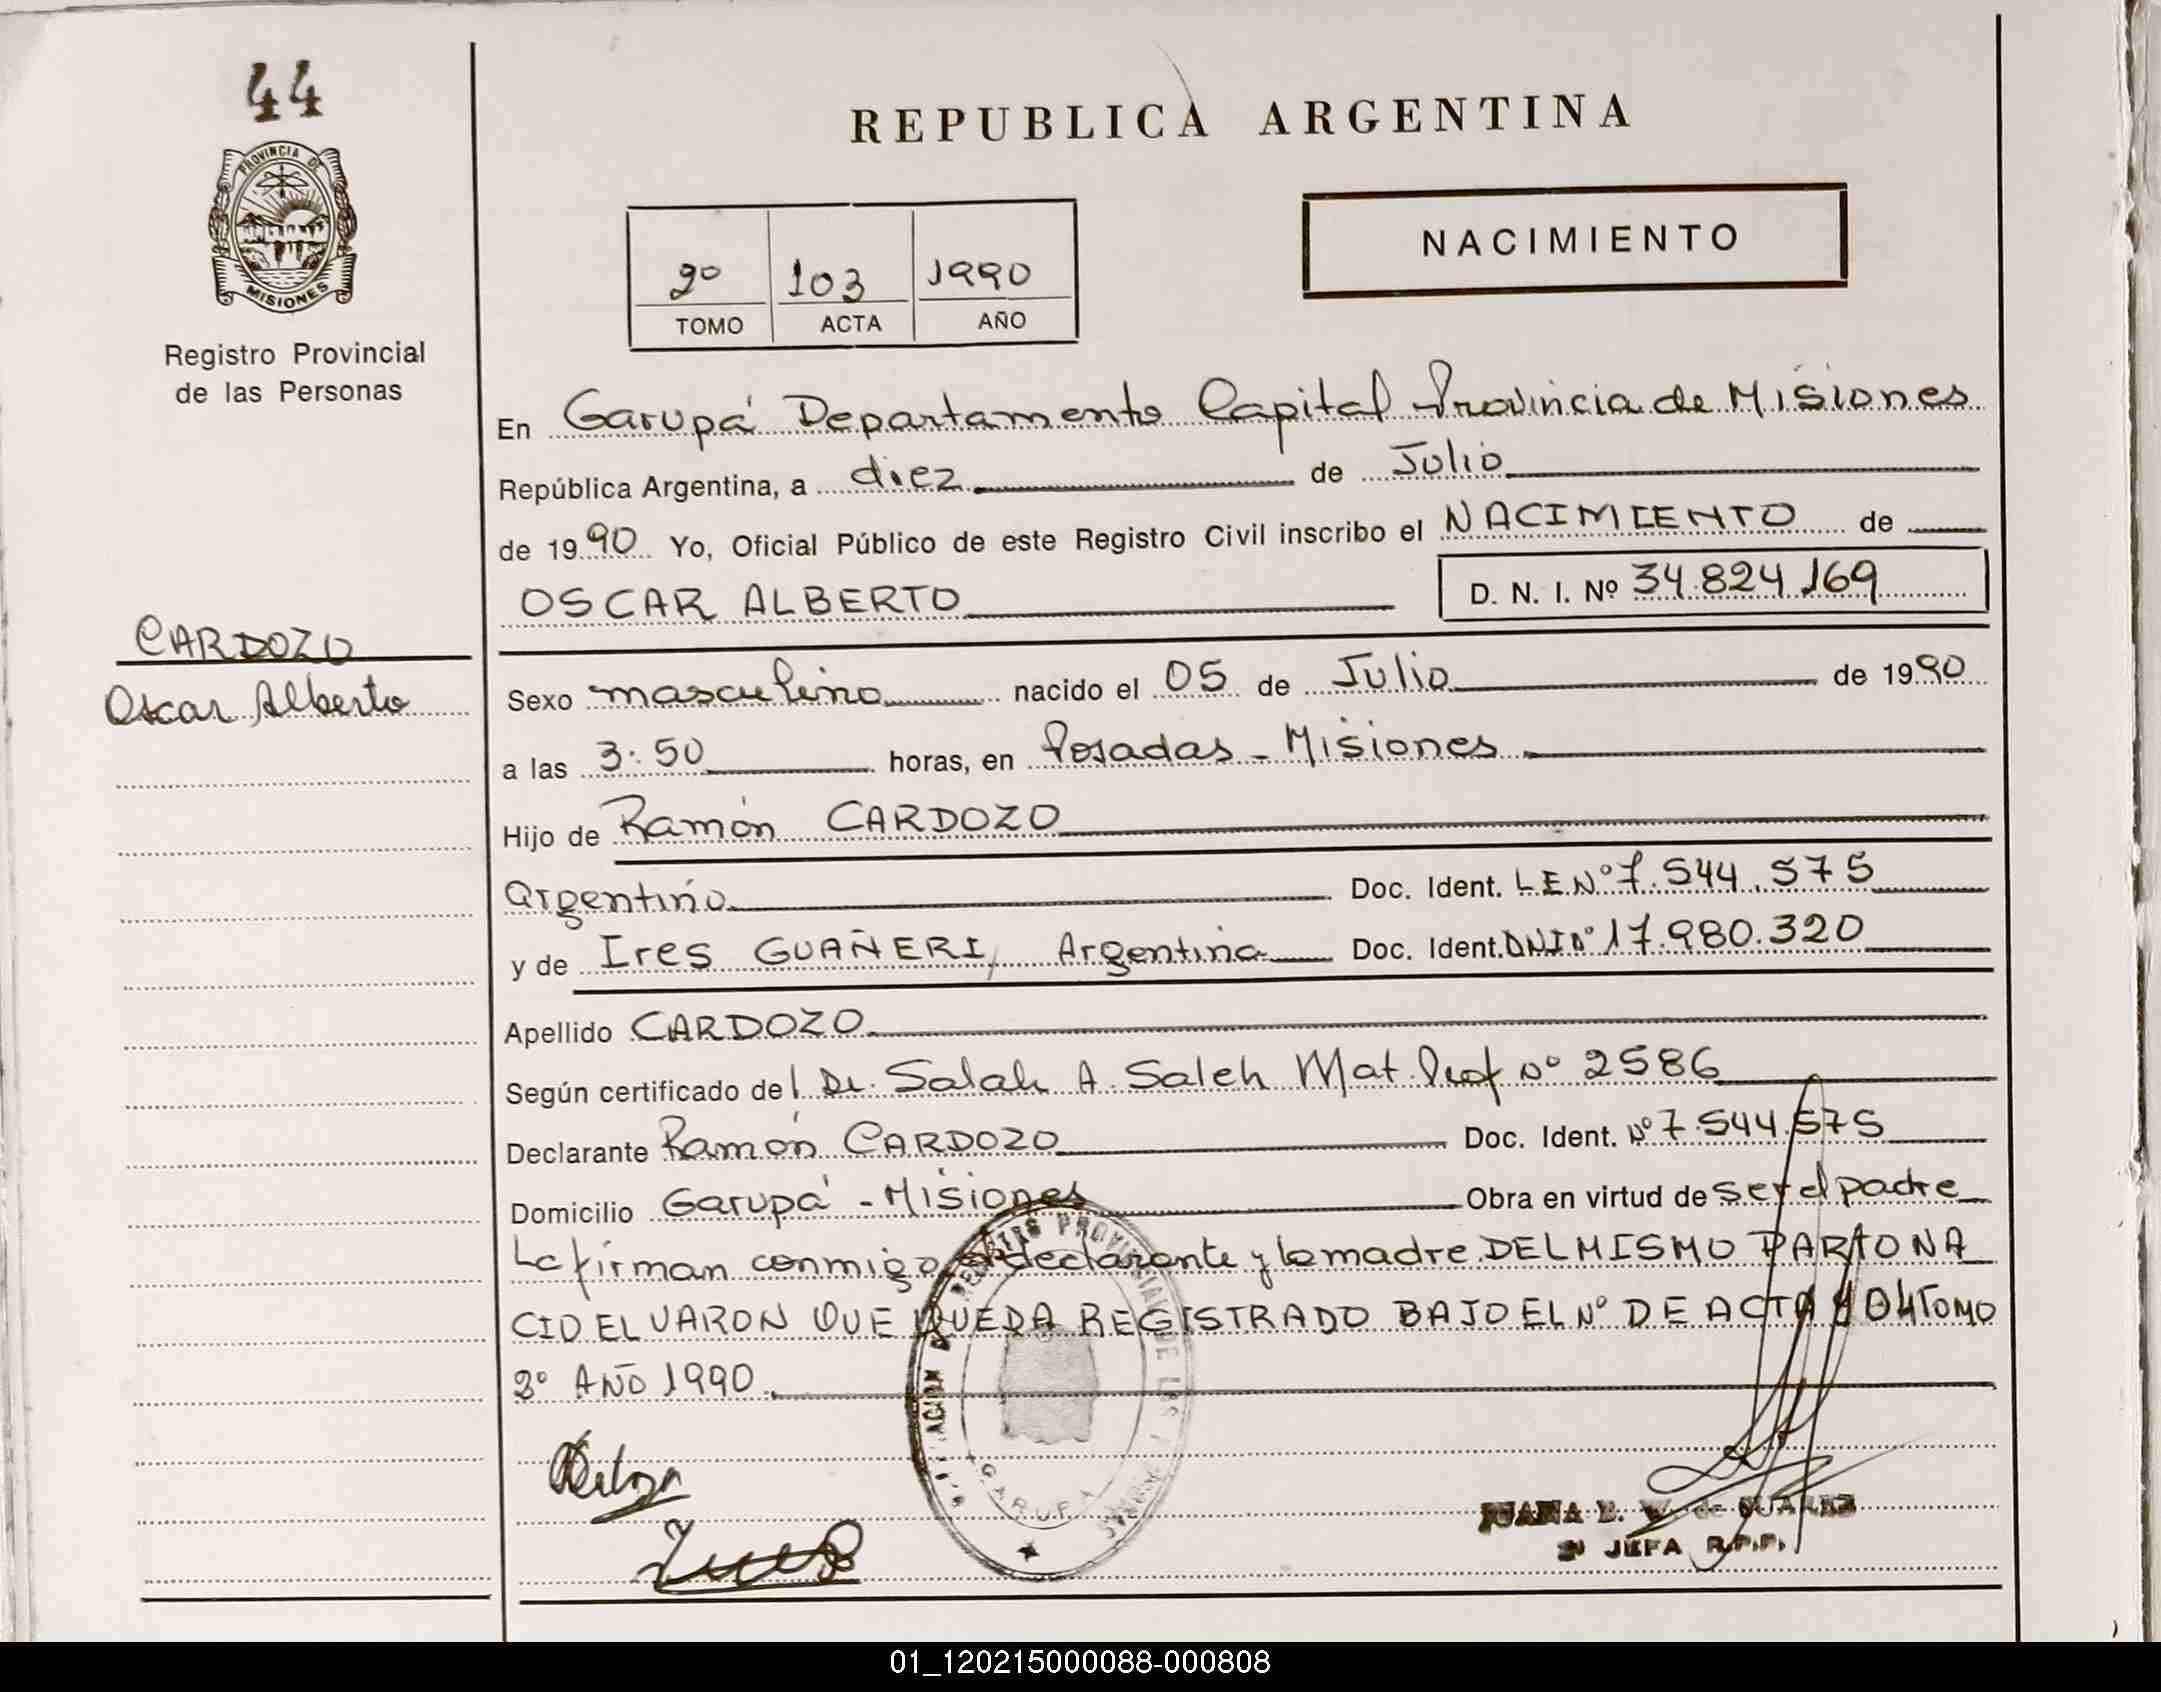 44
PROVINCIA DE
MISIONES
Registro Provincial
de las Personas
REPUBLICA ARGENTINA
2º 103 1990
TOMO ACTA AÑO
NACIMIENTO
En Garupá Departamento Capital Provincia de Misiones
República Argentina, a diez de Julio
de 1990 Yo, Oficial Público de este Registro Civil inscribo el NACIMIENTO de
OSCAR ALBERTO D. N. I. Nº 34.824.169
CARDOZO
Oscar Alberto
Sexo masculino nacido el 05 de Julio de 1990
a las 3:50 horas, en Posadas - Misiones
Hijo de Ramón CARDOZO
Argentino Doc. Ident. LE Nº 7.544.575
y de Ires GUAÑERI, Argentina Doc. Ident. DNI Nº 17.980.320
Apellido CARDOZO
Según certificado del Dr. Salah A. Saleh Mat Prof Nº 2586
Declarante Ramón CARDOZO Doc. Ident. Nº 7.544.575
Domicilio Garupá - Misiones Obra en virtud de ser el padre
La firman conmigo el declarante y la madre. DEL MISMO PARTO NA
CIO EL VARON QUE QUEDA REGISTRADO BAJO EL Nº DE ACTA 104 TOMO
2º AÑO 1990.
REGISTRO PROVINCIAL DE LAS
GARUPA
JUANA E. de SUAREZ
JEFA R.P.P.
01_120215000088-000808